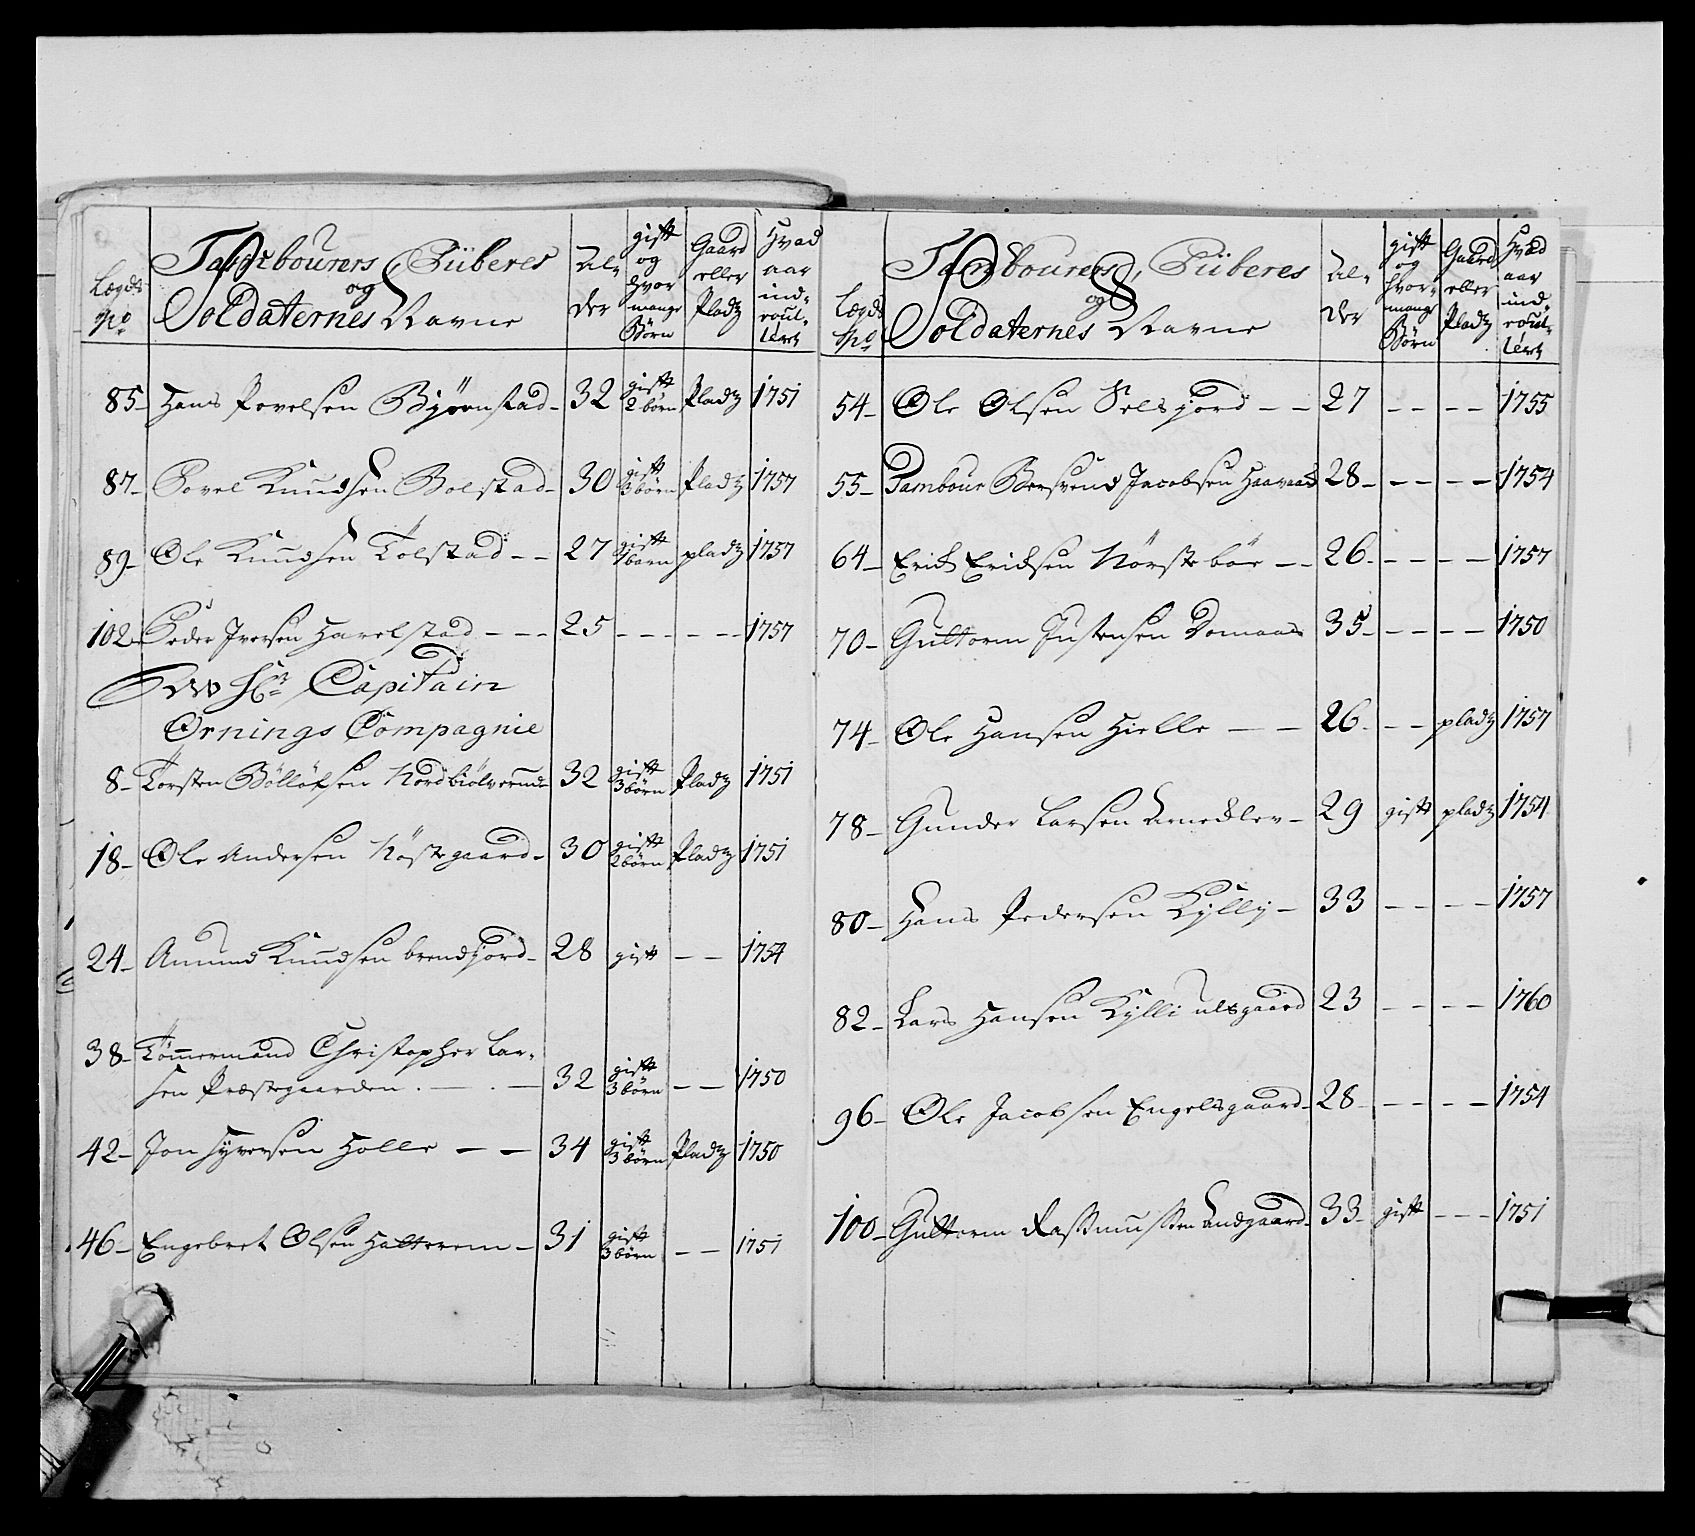 Lægds No
Tambourers, Piiberes og Soldaternes Navne
Al-der
gift og hvor mange Børn
Gaard eller Pladz
Hvad aar ind-roul-leret
85- Hans Povelsen Bjørnstad- 32 gift 2 børn Pladz 1751
87- Povel Knudsen Bolstad- 30 gift 3 børn Pladz 1757
89- Ole Knudsen Tolstad - - 27 gift 1 barn pladz 1757
102- Peder Iversen Harelstad - - - 25 - - - - - - 1757
Hr Capitain
Ornings Compagnie
8- Torsten Böllöfsen Nordbiölverund 32 gift 3 børn Pladz 1751
18- Ole Andersen Nöstegaard- 30 gift 2 børn Pladz 1751
24- Amund Knudsen brendjord- 28 gift - - 1754
38- Tömmermand Christopher Lar-
sen Præstegaarden . - . - 32 gift 3 børn - - 1750
42- Jon Syversen Holle - - 34 gift 3 børn Pladz 1750
46- Engebret Olsen Halterem - 31 gift 3 børn - - 1751
Lægds No
Tambourers, Piiberes og Soldaternes Navne
Al-der
gift og hvor-mange Børn
Gaard eller Pladz
Hvad aar ind-roul-leret
54- Ole Olsen Selsjord - - 27 - - - - 1755
55- Tambour Bersvend Jacobsen Haavaad 28- - - - - 1754
64- Erich Erichsen Nörsteböe - - 26- - - - - 1757
70- Guttorm Justensen Domaas 35- - - - - 1750
74- Ole Hansen Hielle - - 26- - - pladz 1757
78- Gunder Larsen - 29 gift pladz 1754
80- Hans Pedersen Kylly - 33 - - - - 1757
82- Lars Hansen Kylli ulsgaard 23 - - - - 1760
96- Ole Jacobsen Engelsgaard- 28 - - - - 1754
100- Guttorm Rassmussen Landgaard- 33- gift - - - 1751